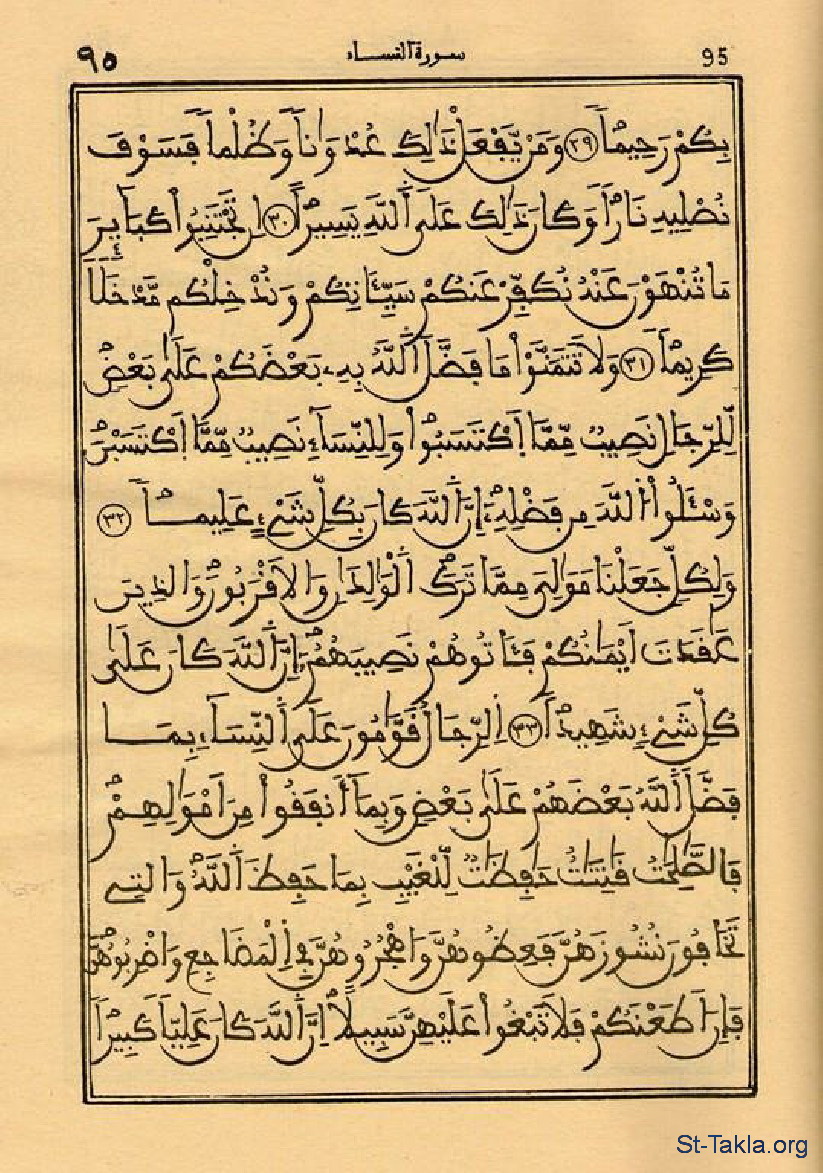 ٩٥ سورة النساء 95
بِكُمْ رَحِيماً ٢٩ وَمَنْ يَّفْعَلْ ذَٰلِكَ عُدْوَٰناً وَظُلْماً فَسَوْفَ
نُصْلِيهِ نَاراً وَكَانَ ذَٰلِكَ عَلَى اَللَّهِ يَسِيراً ٣٠ اِن تَجْتَنِبُواْ كَبَآئِرَ
مَا تُنْهَوْنَ عَنْهُ نُكَفِّرْ عَنكُمْ سَيِّـَٔاتِكُمْ وَنُدْخِلْكُم مَّدْخَلاً
كَرِيماً ٣١ وَلاَ تَتَمَنَّوْاْ مَا فَضَّلَ اَللَّهُ بِهِۦ بَعْضَكُمْ عَلَىٰ بَعْضٍ
لِّلرِّجَالِ نَصِيبٌ مِّمَّا اَكْتَسَبُواْ وَلِلنِّسَآءِ نَصِيبٌ مِّمَّا اَكْتَسَبْنَ
وَسْـَٔلُواْ اُللَّهَ مِن فَضْلِهِۦٓ إِنَّ اَللَّهَ كَانَ بِكُلِّ شَےْءٍ عَلِيماً ٣٢
وَلِكُلٍّ جَعَلْنَا مَوَٰلِىَ مِمَّا تَرَكَ اَلْوَٰلِدَٰنِ وَالاَقْرَبُونَ وَالذِينَ
عَٰقَدَتَ اَيْمَٰنُكُمْ فَـَٔاتُوهُمْ نَصِيبَهُمُۥٓ إِنَّ اَللَّهَ كَانَ عَلَىٰ
كُلِّ شَےْءٍ شَهِيداً ٣٣ اِلرِّجَالُ قَوَّٰمُونَ عَلَى اَلنِّسَآءِ بِمَا
فَضَّلَ اَللَّهُ بَعْضَهُمْ عَلَىٰ بَعْضٍ وَبِمَآ أَنفَقُواْ مِنَ اَمْوَٰلِهِمْ
فَالصَّٰلِحَٰتُ قَٰنِتَٰتٌ حَٰفِظَٰتٌ لِّلْغَيْبِ بِمَا حَفِظَ اَللَّهُ وَالَٰتِے
تَخَافُونَ نُشُوزَهُنَّ فَعِظُوهُنَّ وَاهْجُرُوهُنَّ فِے اِلْمَضَاجِعِ وَاضْرِبُوهُنَّ
فَإِنَ اَطَعْنَكُمْ فَلاَ تَبْغُواْ عَلَيْهِنَّ سَبِيلاً اِنَّ اَللَّهَ كَانَ عَلِيّاً كَبِيراً
St-Takla.org